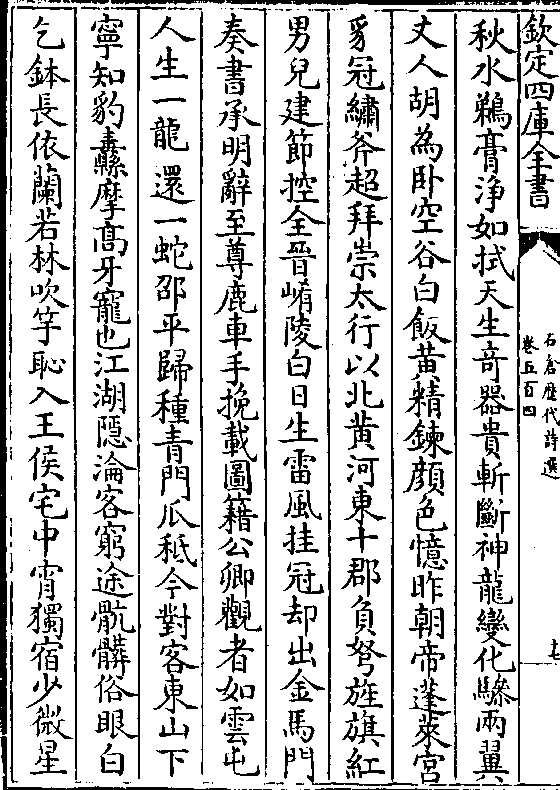 欽定四庫全書
石倉歴代詩選
卷五百四
十七
秋水鵜膏淨如拭天生竒器貴斬斷神龍變化驂兩翼
丈人胡為卧空谷白飯黄精鍊顔色憶昨朝帝蓬萊宫
豸冠繡斧超拜崇太行以北黄河東十郡負弩旌旗紅
男兒建節控全晉崤陵白日生雷風挂冠却出金馬門
奏書承明辭至尊鹿車手挽載圖籍公卿觀者如雲屯
人生一龍還一蛇邵平歸種青門瓜秪今對客東山下
寧知豹纛摩髙牙寵也江湖隠淪客窮途骯髒俗眼白
乞鉢長依蘭若林吹竽恥入王侯宅中宵獨宿少微星